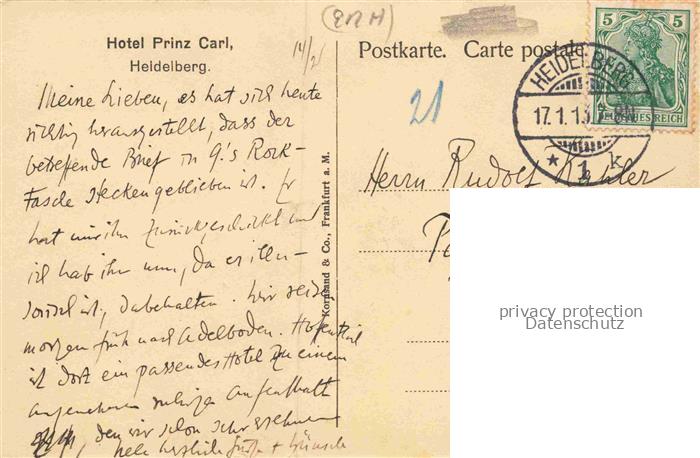 (9MH)
Hotel Prinz Carl,
Heidelberg.
14/21
Postkarte. Carte postale.
5 5
DEUTSCHES REICH
HEIDELBERG
17.1.1
* 1 k
21
Meine Lieben, es hat sich heute
richtig herausgestellt, dass der
betreffende Brief in G.'s Rock-
Tasche steckengeblieben ist. Er
hat mir ihn zurückgeschickt und
ich hab ihn nun, da er illu-
soriel ist, dabehalten. Wir reisen
morgen früh nach Adelboden. Hoffentlich
ist dort ein passendes Hotel zu einem
angenehmen ruhigen Aufenthalt
den wir schon sehr ersehnen
Viele herzliche Grüße + Wünsche
Herrn Rudolf
Kornsand & Co., Frankfurt a. M.
privacy protection
Datenschutz